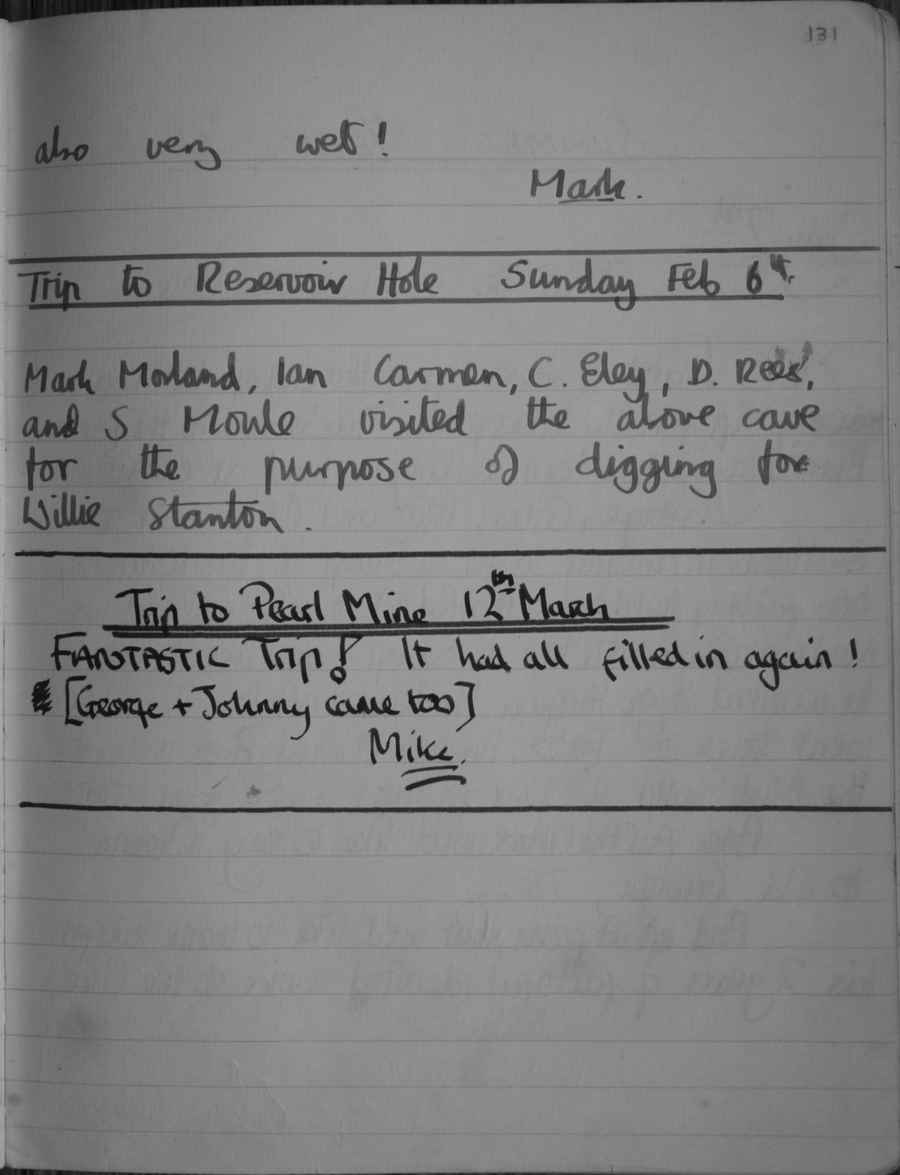 131
also very wet!
Mark.
Trip to Reservoir Hole Sunday Feb 6th
Mark Morland, Ian Carmen, C. Eley, D. Rees,
and S Moule visited the above cave
for the purpose of digging for
Willie Stanton.
Trip to Pearl Mine 12th March
FANTASTIC Trip! It had all filled in again!
[George + Johnny came too]
Mike.